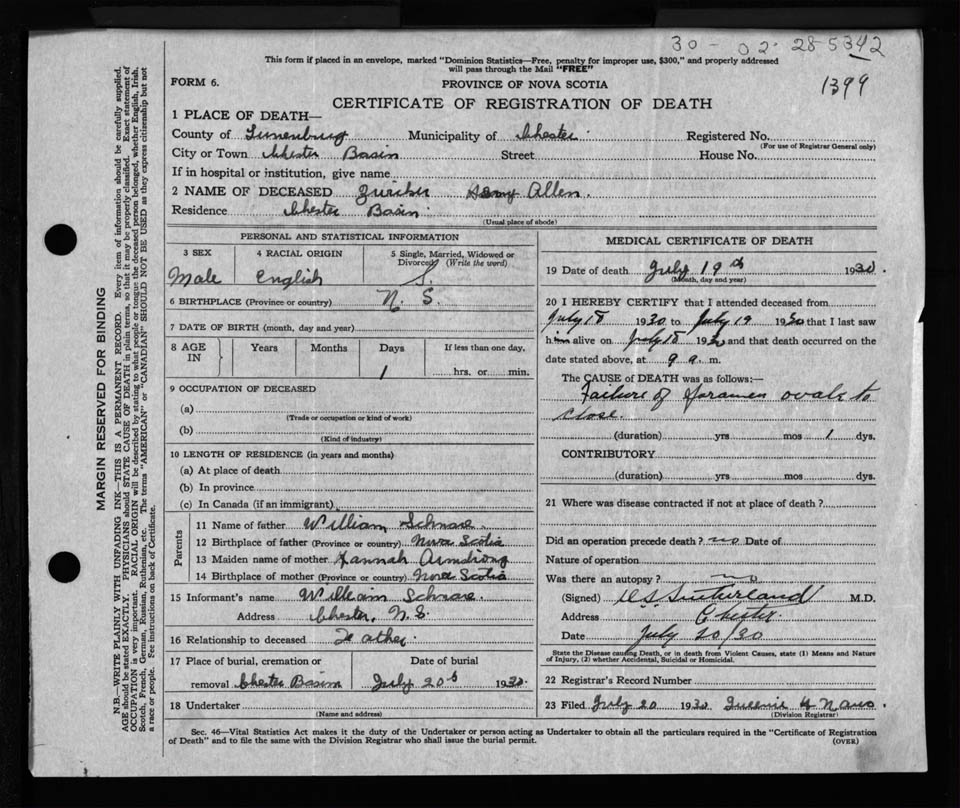 30 - 02 - 285342
1399
This form if placed in an envelope, marked "Dominion Statistics—Free, penalty for improper use, $300," and properly addressed
will pass through the Mail "FREE"
FORM 6.
PROVINCE OF NOVA SCOTIA
CERTIFICATE OF REGISTRATION OF DEATH
1 PLACE OF DEATH—
County of Lunenburg Municipality of Chester Registered No.
(For use of Registrar General only)
City or Town Chester Basin Street House No.
If in hospital or institution, give name
2 NAME OF DECEASED Allen.
Residence Chester Basin
(Usual place of abode)
PERSONAL AND STATISTICAL INFORMATION
3 SEX 4 RACIAL ORIGIN 5 Single, Married, Widowed or Divorced (Write the word)
Male English S.
6 BIRTHPLACE (Province or country) N. S.
7 DATE OF BIRTH (month, day and year)
8 AGE IN Years Months Days If less than one day,
1 hrs. or min.
9 OCCUPATION OF DECEASED
(a)
(Trade or occupation or kind of work)
(b)
(Kind of industry)
10 LENGTH OF RESIDENCE (in years and months)
(a) At place of death
(b) In province
(c) In Canada (if an immigrant)
Parents
11 Name of father William Schnare
12 Birthplace of father (Province or country) Nova Scotia
13 Maiden name of mother Hannah Armstrong
14 Birthplace of mother (Province or country) Nova Scotia
15 Informant's name William Schnare
Address Chester, N.S.
16 Relationship to deceased Father
17 Place of burial, cremation or Date of burial
removal Chester Basin July 20 1930
18 Undertaker
(Name and address)
MEDICAL CERTIFICATE OF DEATH
19 Date of death July 19th 1930.
(Month, day and year)
20 I HEREBY CERTIFY that I attended deceased from
July 18 1930 to July 19 1930 that I last saw
him alive on July 18 1930 and that death occurred on the
date stated above, at 9 a. m.
The CAUSE of DEATH was as follows:—
Failure of foramen ovale to
close.
(duration) yrs mos 1 dys.
CONTRIBUTORY
(duration) yrs mos dys.
21 Where was disease contracted if not at place of death?
Did an operation precede death? no Date of
Nature of operation
Was there an autopsy? no
(Signed) Sutherland M.D.
Address Chester
Date July 20/30
State the Disease causing Death, or in death from Violent Causes, state (1) Means and Nature
of Injury, (2) whether Accidental, Suicidal or Homicidal.
22 Registrar's Record Number
23 Filed July 20 1930
(Division Registrar)
Sec. 46—Vital Statistics Act makes it the duty of the Undertaker or person acting as Undertaker to obtain all the particulars required in the "Certificate of Registration
of Death" and to file the same with the Division Registrar who shall issue the burial permit. (OVER)
MARGIN RESERVED FOR BINDING
N.B.—WRITE PLAINLY WITH UNFADING INK—THIS IS A PERMANENT RECORD. Every item of information should be carefully supplied.
AGE should be stated EXACTLY. PHYSICIANS should STATE CAUSE OF DEATH in plain terms, so that it may be properly classified. Exact statement of
OCCUPATION is very important. RACIAL ORIGIN will be described by stating to what people or tongue the deceased person belonged, whether English, Irish,
Scotch, French, German, Russian, Ruthenian, etc. The terms "AMERICAN" or "CANADIAN" SHOULD NOT BE USED as they express citizenship but not
a race or people. See instructions on back of Certificate.